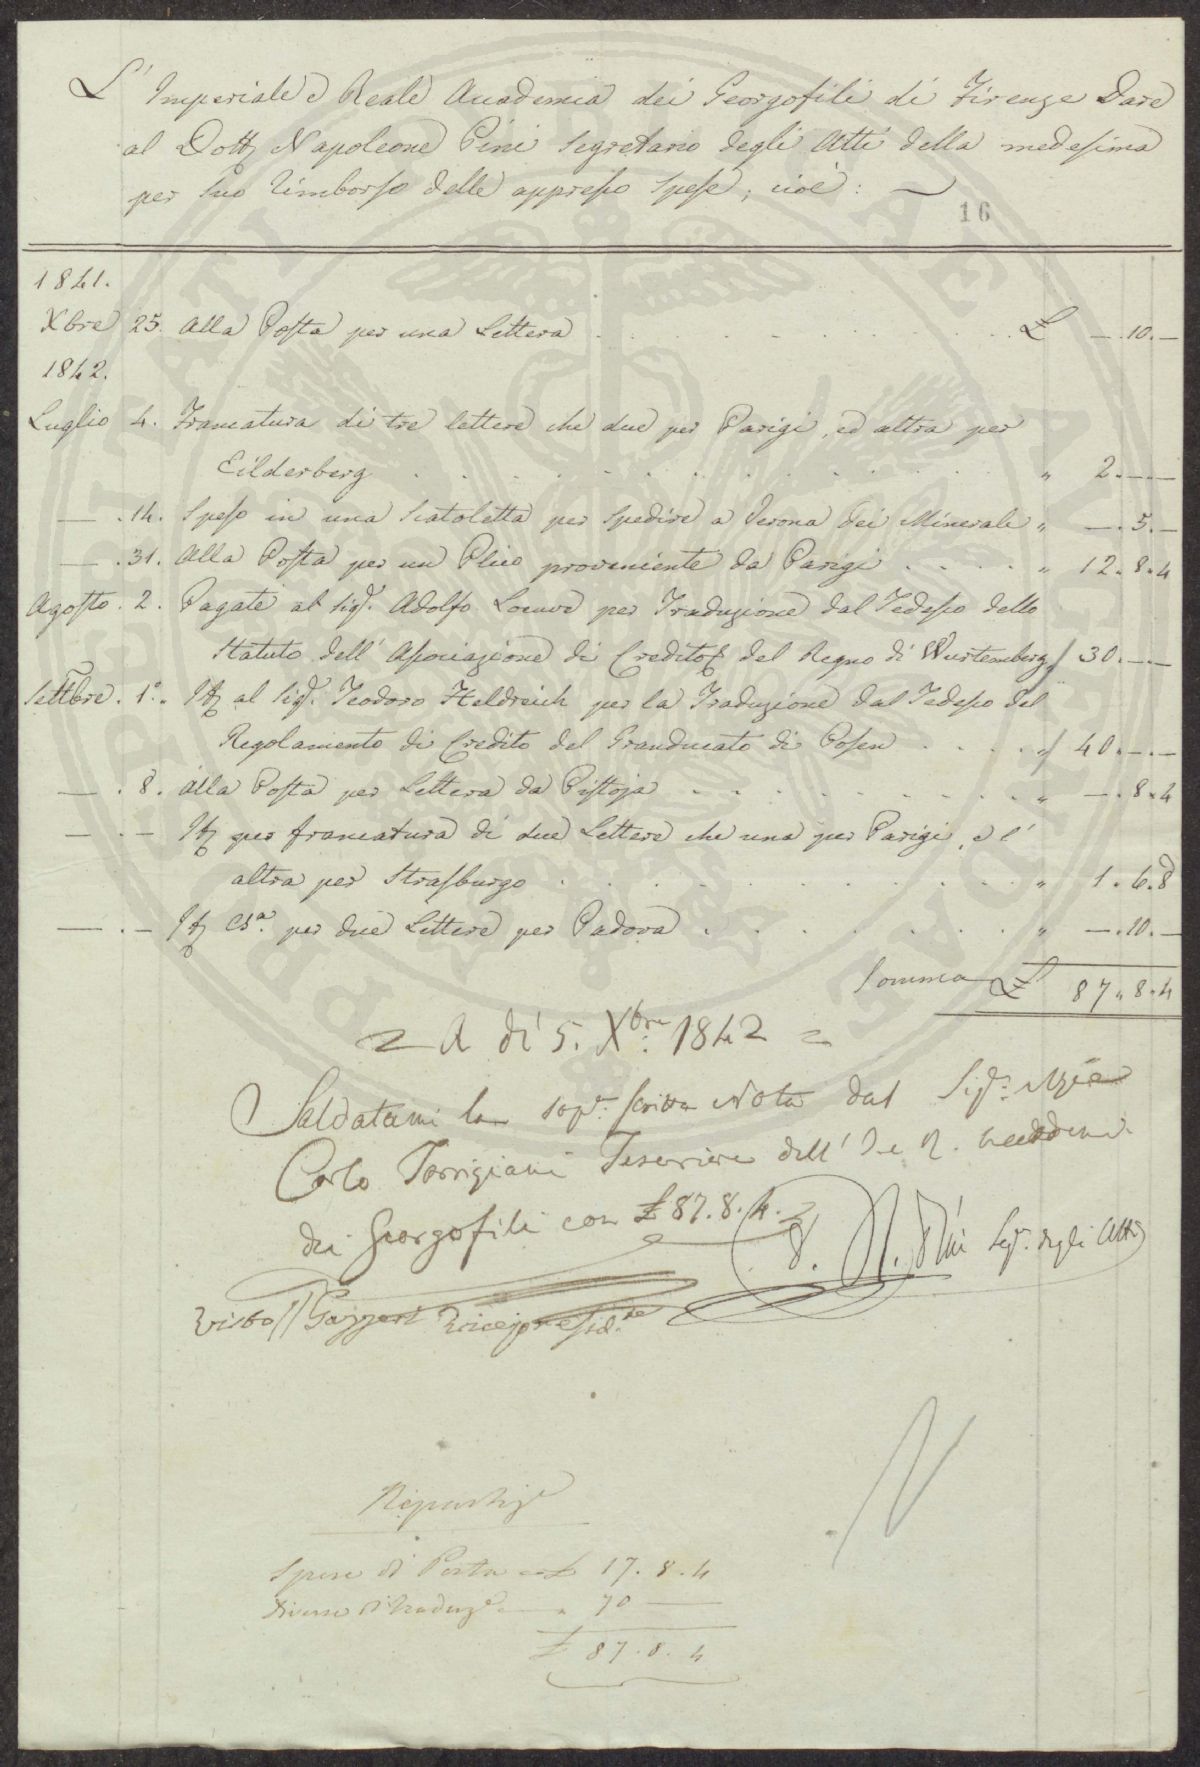 L' Imperiale e Reale Accademia dei Georgofili di Firenze Dare
al Dott. Napoleone Pini Segretario degli Atti della medesima
per suo rimborso delle appresso spese; cioè:
16
1841.
Xbre 25. Alla Posta per una Lettera £ —.10.—
1842.
Luglio 4. Francatura di tre lettere che due per Parigi, ed altra per
Eilderberg " 2.—.—
— . 14. Speso in una Scatoletta per spedire a Verona dei Minerali " —.5.—
— . 31. Alla Posta per un Plico proveniente da Parigi " 12.8.4
Agosto . 2. Pagate al Sigr. Adolfo per Traduzione dal Tedesco dello
Statuto dell' Associazione di Credito del Regno di Würtemberg " 30.—.—
Settbre . 1°. al Sigr. Teodoro Heldreich per la Traduzione dal Tedesco del
Regolamento di Credito del Granducato di Posen " 40.—.—
— . 8. alla Posta per Lettera da Pistoja " —.8.4
— . — per francatura di due Lettere che una per Parigi, e l'
altra per Strasburgo " 1.6.8
— . — per due Lettere per Padova " —.10.—
Somma £ 87.8.4
A di 5. Xbre 1842
Saldatami la sopr. scritta Nota dal Sigr.
Carlo Torrigiani Tesoriere dell' I. e R. Accademia
dei Georgofili con £ 87.8.4.
D. N. Pini Segr. degli Atti
Visto Gazzeri Vicepresidte
Repartiz.e
Spese di Posta £ 17.8.4
di Traduz.e " 70 —
£ 87.8.4
PROSPERITATI PUBLICAE AUGENDAE